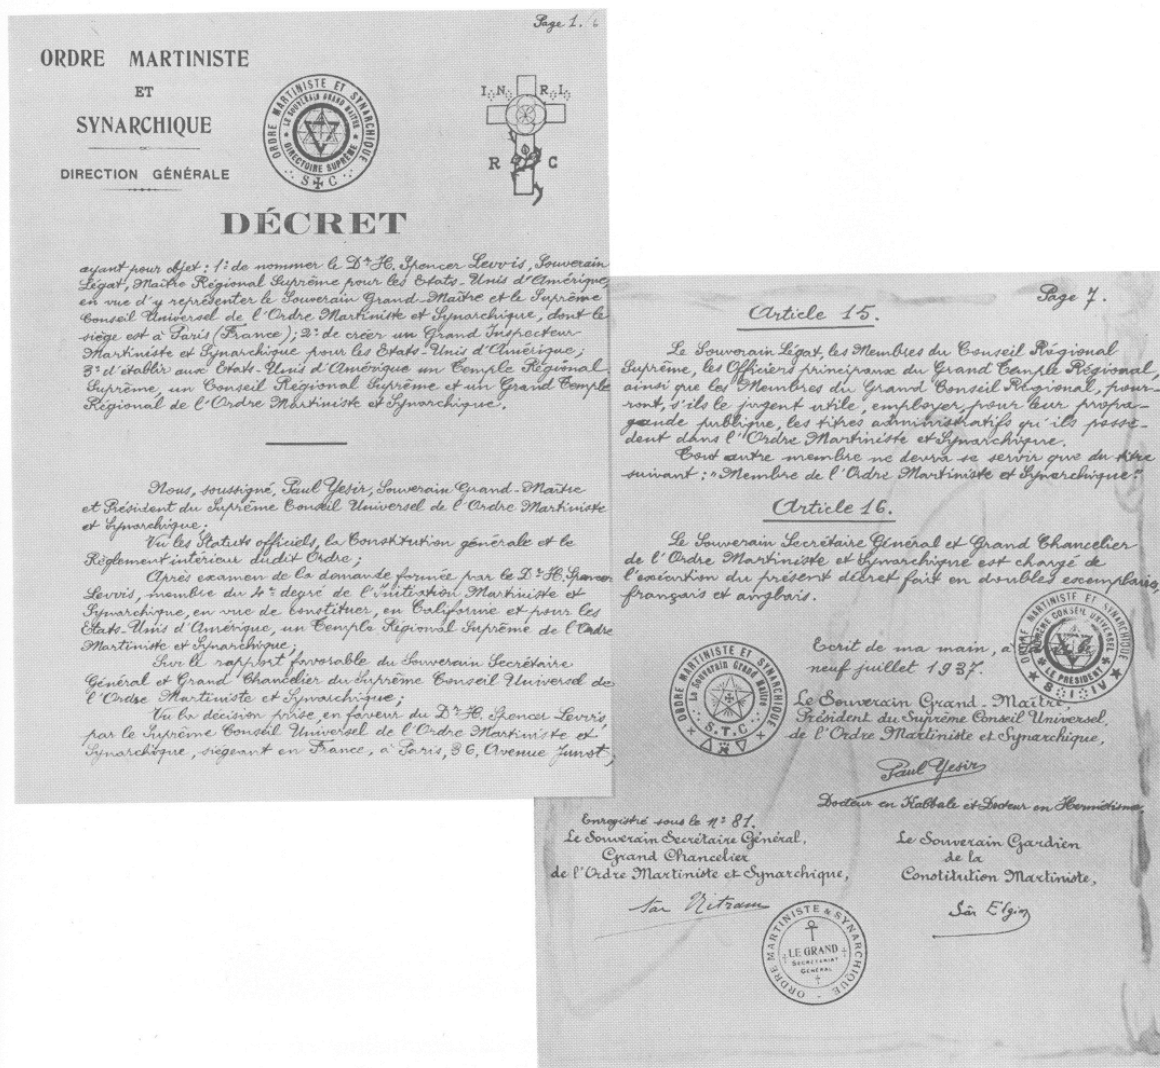 Page 1.
ORDRE MARTINISTE
ET
SYNARCHIQUE
DIRECTION GÉNÉRALE
ORDRE MARTINISTE ET SYNARCHIQUE
LE SOUVERAIN GRAND MAITRE
DIRECTOIRE SUPRÊME
S C
I N R I
R C
DÉCRET
ayant pour objet : 1º de nommer le Dr H. Spencer Levvis, Souverain
Légat, Maître Régional Suprême pour les Etats-Unis d'Amérique,
en vue d'y représenter le Souverain Grand-Maître et le Suprême
Conseil Universel de l'Ordre Martiniste et Synarchique, dont le
siège est à Paris (France) ; 2º de créer un Grand Inspecteur
Martiniste et Synarchique pour les Etats-Unis d'Amérique ;
3º d'établir aux Etats-Unis d'Amérique un Temple Régional
Suprême, un Conseil Régional Suprême et un Grand Temple
Régional de l'Ordre Martiniste et Synarchique.
Nous, soussigné, Paul Yesir, Souverain Grand-Maître
et Président du Suprême Conseil Universel de l'Ordre Martiniste
et Synarchique ;
Vu les Statuts officiels, la Constitution générale et le
Règlement intérieur dudit Ordre ;
Après examen de la demande formée par le Dr H. Spencer
Levvis, membre du 4e degré de l'Initiation Martiniste et
Synarchique, en vue de constituer, en Californie et pour les
Etats-Unis d'Amérique, un Temple Régional Suprême de l'Ordre
Martiniste et Synarchique ;
Sur le rapport favorable du Souverain Secrétaire
Général et Grand Chancelier du Suprême Conseil Universel de
l'Ordre Martiniste et Synarchique ;
Vu la décision prise, en faveur du Dr H. Spencer Levvis,
par le Suprême Conseil Universel de l'Ordre Martiniste et
Synarchique, siégeant en France, à Paris, 36, Avenue Junot,
Page 7.
Article 15.
Le Souverain Légat, les Membres du Conseil Régional
Suprême, les Officiers principaux du Grand Temple Régional,
ainsi que les Membres du Grand Conseil Régional, pour-
ront, s'ils le jugent utile, employer, pour leur propa-
gande publique, les titres administratifs qu'ils possè-
dent dans l'Ordre Martiniste et Synarchique.
Tout autre membre ne devra se servir que du titre
suivant : "Membre de l'Ordre Martiniste et Synarchique."
Article 16.
Le Souverain Secrétaire Général et Grand Chancelier
de l'Ordre Martiniste et Synarchique est chargé de
l'exécution du présent décret fait en doubles exemplaires,
français et anglais.
Ecrit de ma main, à
neuf juillet 1937.
ORDRE MARTINISTE ET SYNARCHIQUE
SUPRÊME CONSEIL UNIVERSEL
LE PRÉSIDENT
S I IV
ORDRE MARTINISTE ET SYNARCHIQUE
Le Souverain Grand Maître
S.T.C
Le Souverain Grand-Maître,
Président du Suprême Conseil Universel,
de l'Ordre Martiniste et Synarchique,
Paul Yesir
Docteur en Kabbale et Docteur en Hermétisme.
Enregistré sous le nº 81.
Le Souverain Secrétaire Général,
Grand Chancelier
de l'Ordre Martiniste et Synarchique,
Sar Nitram
Le Souverain Gardien
de la
Constitution Martiniste,
Sâr Elgin
ORDRE MARTINISTE & SYNARCHIQUE
LE GRAND
SECRÉTARIAT
GÉNÉRAL